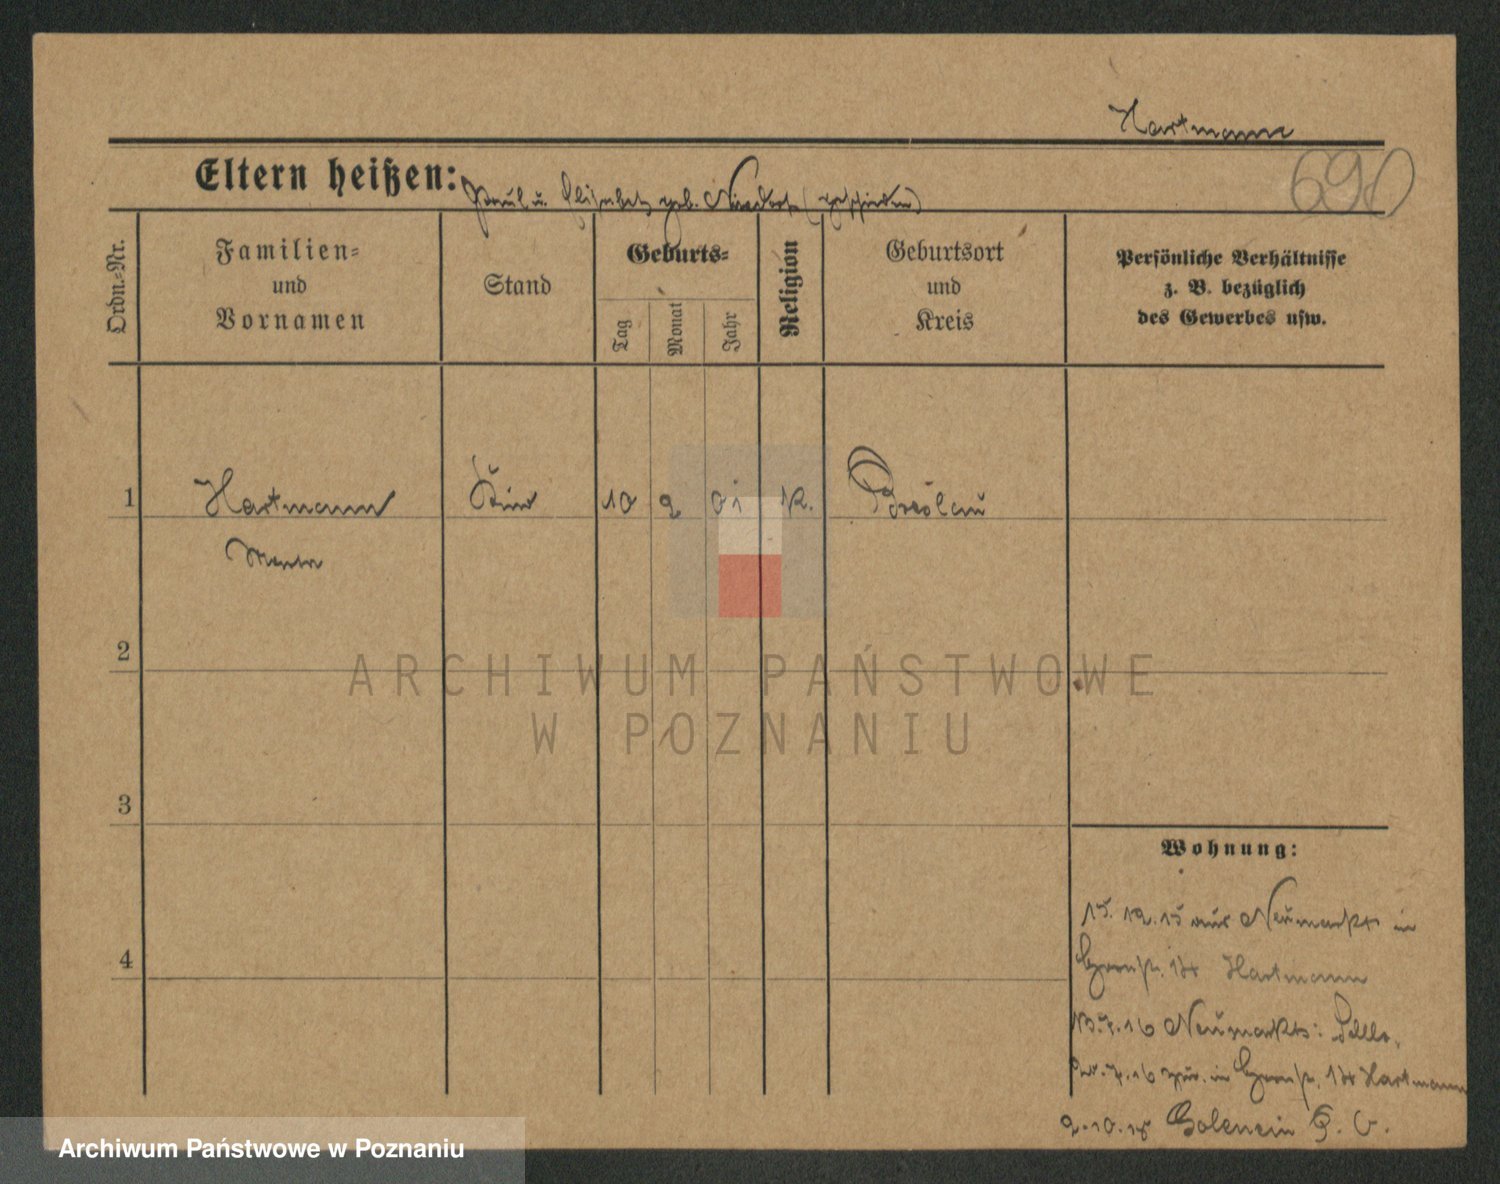 Hartmann
690
Eltern heißen: Paul u. Elisabeth geb. (geschieden)
Ordn.-Nr.
Familien- und Vornamen
Stand
Geburts-
Tag
Monat
Jahr
Religion
Geburtsort und Kreis
Persönliche Verhältnisse
z. B. bezüglich
des Gewerbes usw.
1 Hartmann Kind 10 2 01 K. Breslau
2
3
4
Wohnung:
15. 12. 15 aus Neumarkt in
Hartmann
16 Neumarkt:
16 in Hartmann
2.10.18
ARCHIWUM PAŃSTWOWE
W POZNANIU
Archiwum Państwowe w Poznaniu